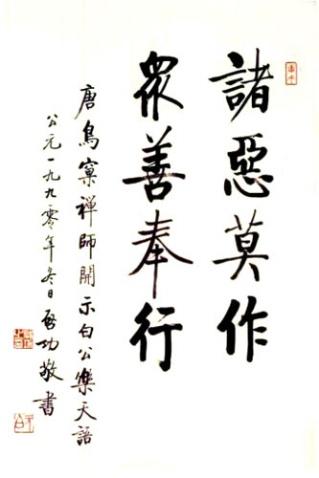 諸惡莫作
眾善奉行
唐鳥窠禅師開示白公樂天語
公元一九九零年冬日啓功敬書